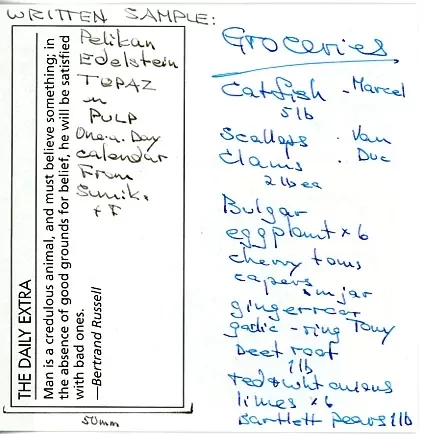 WRITTEN SAMPLE:
THE DAILY EXTRA
Man is a credulous animal, and must believe something; in
the absence of good grounds for belief, he will be satisfied
with bad ones.
—Bertrand Russell
Pelikan
Edelstein
TOPAZ
on
PULP
One.a.Day
calendar
From
50mm
Groceries
Catfish - Marcel
5 lb
Scallops . Van
Clams . Duc
2 lb ea
Bulgar
eggplant x 6
cherry toms
capers in jar
gingerroot
garlic - ring Tony
Beet root
1 lb
red & wht onions
limes x 6
Bartlett pears 1 lb